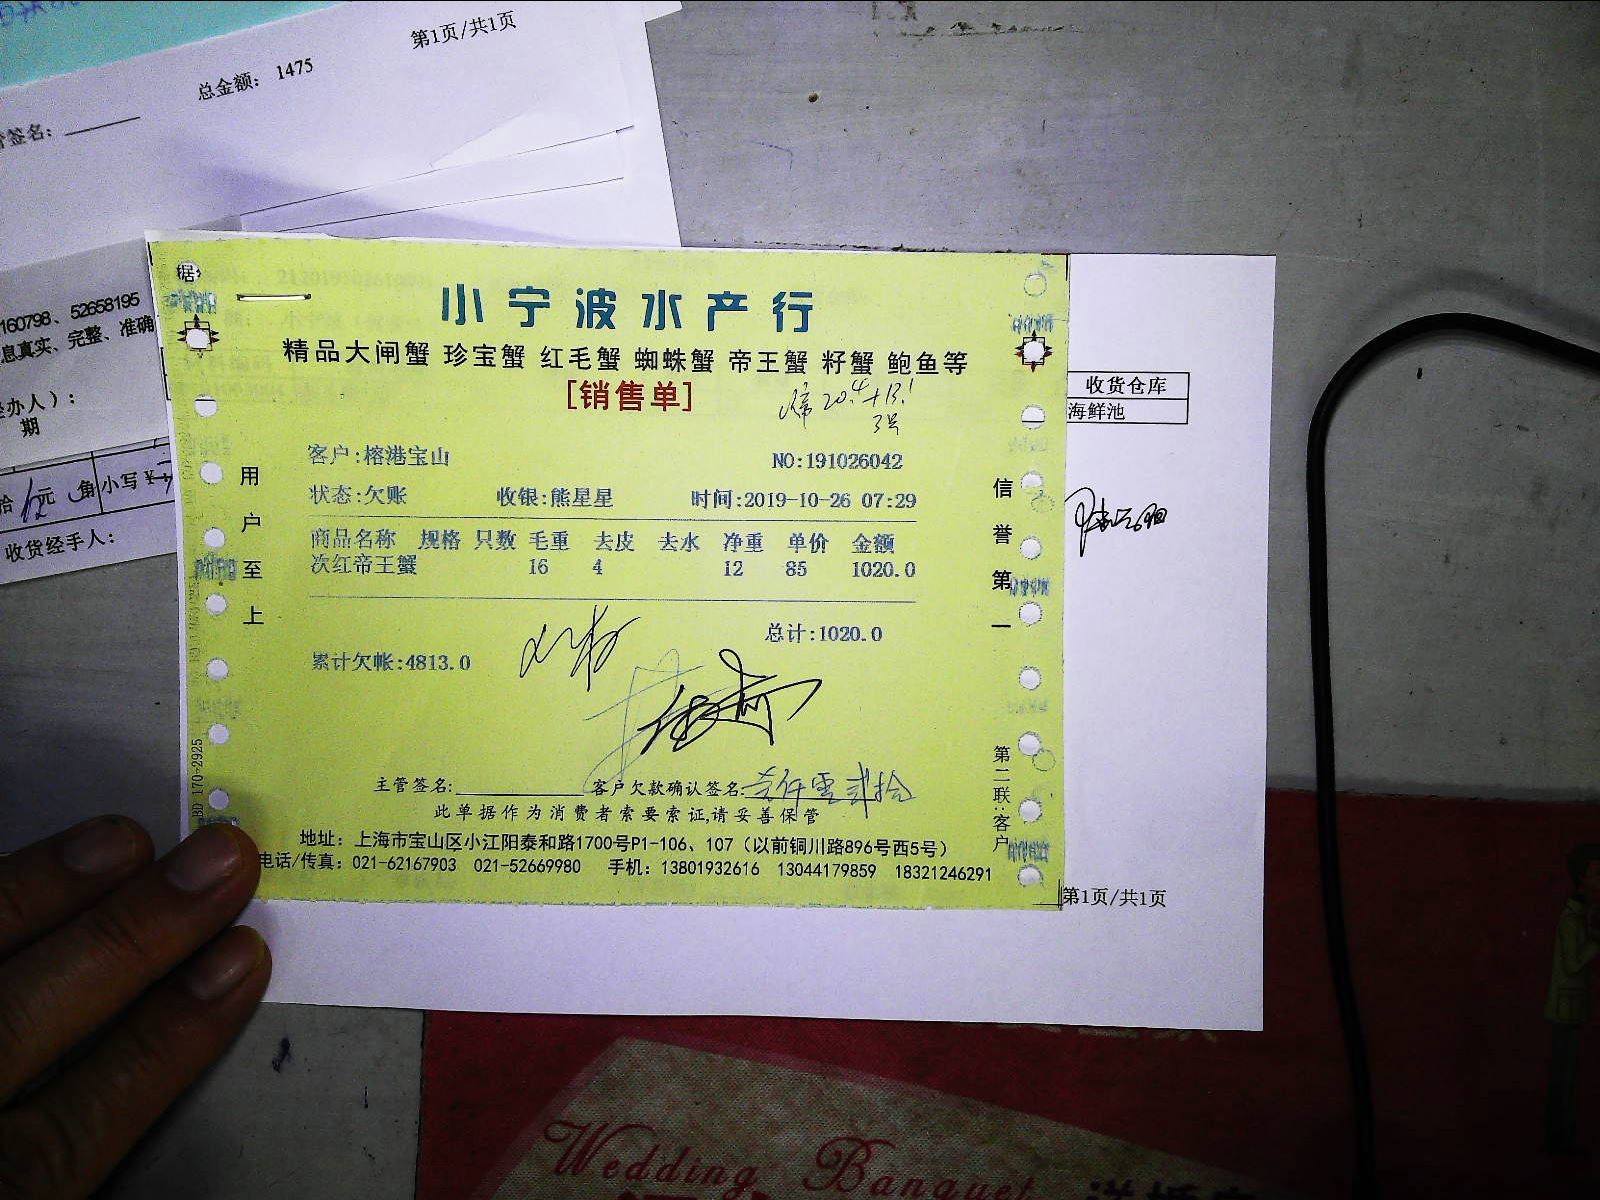 第1页/共1页
总金额: 1475
签名:
160798、52658195
息真实、完整、准确
经办人）:
期
拾 元 角 小写¥
收货经手人:
据
小宁波水产行
精品大闸蟹 珍宝蟹 红毛蟹 蜘蛛蟹 帝王蟹 籽蟹 鲍鱼等
[销售单]
收货仓库
海鲜池
客户:榕港宝山 NO:191026042
状态:欠账 收银:熊星星 时间:2019-10-26 07:29
商品名称 规格 只数 毛重 去皮 去水 净重 单价 金额
次红帝王蟹 16 4 12 85 1020.0
总计:1020.0
累计欠帐:4813.0
用户至上
信誉第一
第二联:客户
BD 170-2925
主管签名: 客户欠款确认签名: 壹仟零贰拾
此单据作为消费者索要索证,请妥善保管
地址: 上海市宝山区小江阳泰和路1700号P1-106、107（以前铜川路896号西5号）
电话/传真: 021-62167903 021-52669980 手机: 13801932616 13044179859 18321246291
第1页/共1页
Wedding Banquet